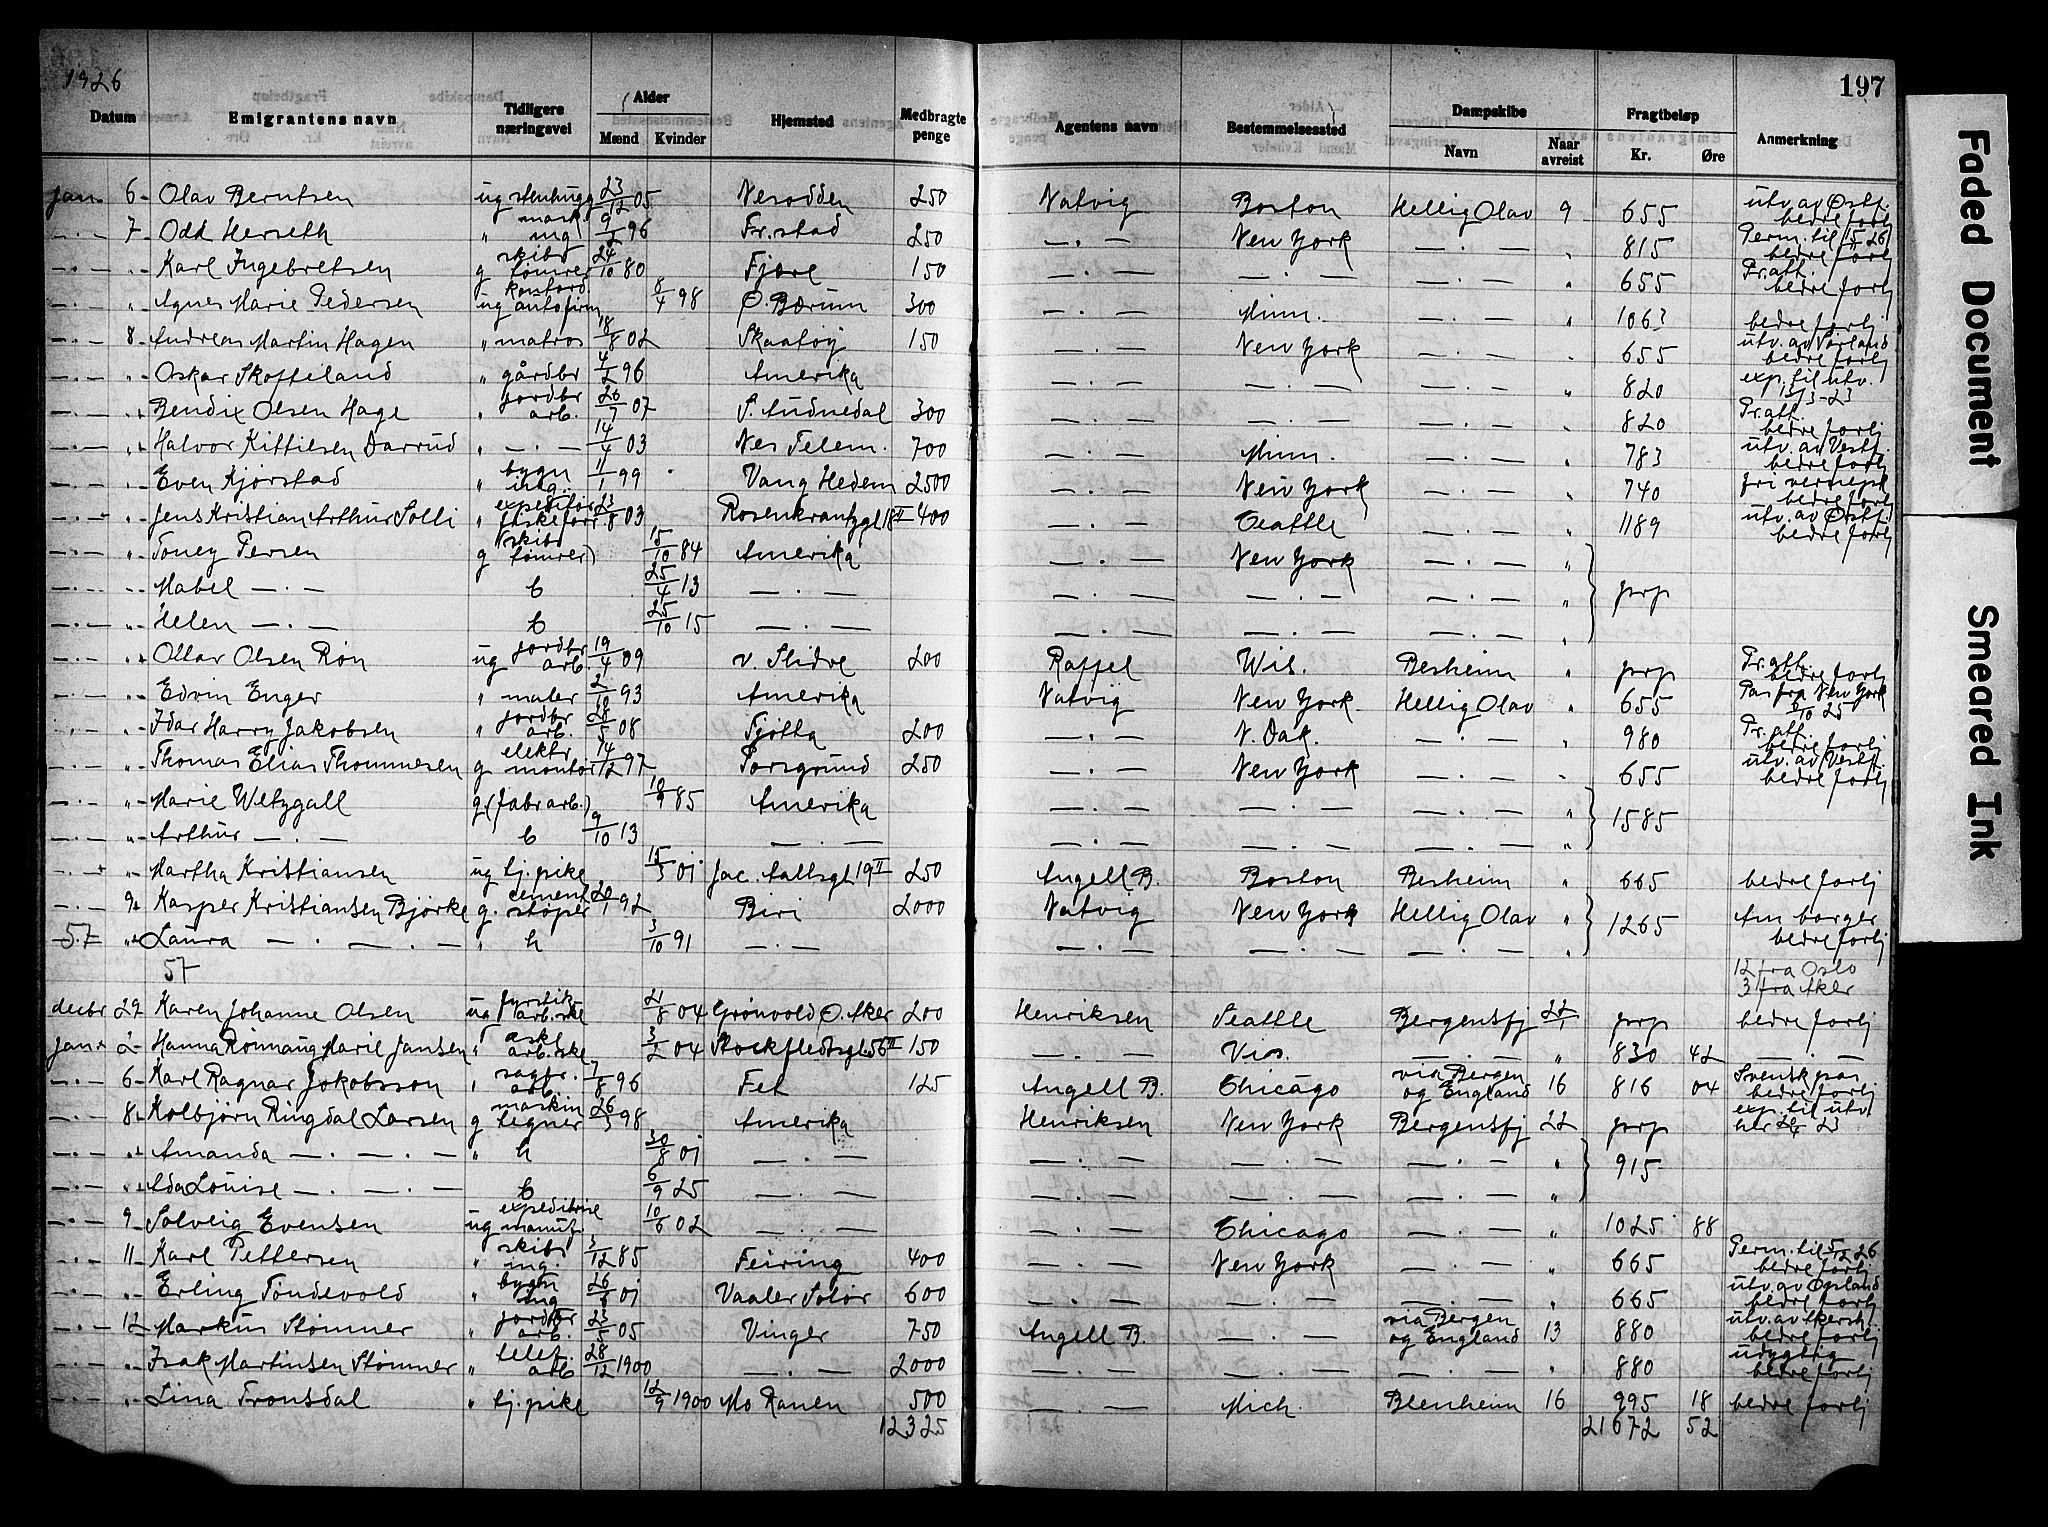 1926
197
Datum Emigrantens navn Tidligere næringsvei Alder Mænd Kvinder Hjemsted Medbragte penge Agentens navn Bestemmelsessted Dampskibe Navn Naar avreist Fragtbeløp Kr. Øre Anmerkning
jan. 6 Olav Berntsen ug stenhugg 23/12 05 Nesodden 250 Natvig Boston Hellig Olav 9 655 utv. av Østf. bedre forlj
— . — 7 Odd Herseth " mask. ing 9/2 96 Fr.stad 250 — . — New York — . — " 815 Perm. til 15/ 26 bedre forlj
— . — " Karl Ingebretsen g skibs tømrer 24/10 80 Fjære 150 — . — — . — — . — " 655 Pr.att. bedre forlj
— . — " Agnes Marie Pedersen ug kontord. autofirm 8/4 98 Ø. Bærum 300 — . — Minn. — . — " 1063 bedre forlj
— . — 8 Andreas Martin Hagen " matros 18/8 02 Skaatøy 150 — . — New York — . — " 655 utv. av Sørland bedre forlj
— . — " Oskar Skofteland " gårdbr 4/2 96 Amerika — . — — . — — . — " 820 exp. til utv. 13/3-23
— . — " Bendix Olsen Hage " jordbr arb. 26/7 07 S. Audnedal 300 — . — — . — — . — " 820 Pr.att. bedre forlj
— . — " Halvor Kittilsen Darrud " — . — 14/4 03 Nes Telem. 700 — . — Minn. — . — " 783 utv. av Vestf. bedre forlj
— . — " Even Kjørstad " bygn ing. 11/1 99 Vang Hedem 2500 — . — New York — . — " 740 fri vernepl bedre forlj
— . — " Jens Kristian Arthur Solli " expeditør fiskeforr 23/8 03 Rosenkrantzgt 18 II 400 — . — Seattle — . — " 1189 utv. av Østf. bedre forlj
— . — " Toney Persen g (skibs tømrer) 15/10 84 Amerika — . — New York — . — " prp
— . — " Mabel — . — b 25/4 13 — . — — . — — . — — . — "
— . — " Helen — . — b 25/10 15 — . — — . — — . — — . — "
— . — " Ollar Olsen Røn ug jordbr arb. 19/4 09 v. Slidre 200 Raffel Wis. Besheim " prp Pr.att. bedre forlj
— . — " Edvin Enger " maler 2/12 93 Amerika Natvig New York Hellig Olav " 655 Pas fra New York 6/10 25
— . — " Idar Harry Jakobsen " jordbr arb. 26/5 08 Tjøtta 200 — . — N. Dak. — . — " 980 Pr.att. bedre forlj
— . — " Thomas Elias Thommesen g elektr montør 14/12 97 Porsgrund 250 — . — New York — . — " 655 utv. av Vestf. bedre forlj
— . — " Marie Wetzgall g (fabr arb.) 10/9 85 Amerika — . — — . — — . — " 1585
— . — " Arthur — . — b 9/10 13 — . — — . — — . — — . — "
— . — " Martha Kristiansen ug tj.pike 15/3 01 Jac. Aallsgt 19 II 250 Angell B. Boston Besheim " 665 bedre forlj
— . — 9 Kasper Kristiansen Bjørke g. cement støper 20/1 92 Biri 2000 Natvig New York Hellig Olav " 1265 Am borger bedre forlj
57 " Laura — . — . — " h 3/10 91 — . — — . — — . — — . — "
57
12 fra Oslo
3 fra Aker
decbr 29 Karen Johanne Olsen ug fyrstik arb.ske 21/8 04 Grønvold Ø. Aker 200 Henriksen Seattle Bergensfj 22/1 prp bedre forlj
jan. 2 Hanna Rønnaug Marie Jansen " æske arb.ske 3/2 04 Stockfledtsgt. 56 II 150 — . — Vis. — . — " 830 42 — . —
— . — 6 Karl Ragnar Jakobsson " sagbr. arb. 7/8 96 Fet 125 Angell B. Chicago via Bergen og England 16 816 04 Svensk pas bedre forlj
— . — 8 Kolbjørn Ringdal Larsen g maskin tegner 26/3 98 Amerika Henriksen New York Bergensfj 22 prp exp. til utv. her 20/4 23
— . — " Amanda — . — . — " h 30/8 01 — . — — . — — . — — . — " 915
— . — " Ada Louise — . — . — b 6/9 25 — . — — . — — . — — . — "
— . — 9 Solveig Evensen ug expeditrise manuf. 10/6 02 — . — — . — Chicago — . — " 1025 88
— . — 11 Karl Pettersen " skibs ing. 3/12 85 Feiring 400 — . — New York — . — " 665 Perm. til 5/12 26 bedre forlj
— . — " Erling Tondevold " bygn ing 26/6 01 Vaaler Solør 600 — . — — . — — . — " 665 utv. av Opland bedre forlj
— . — 12 Markus Stømner " jordbr arb. 23/5 05 Vinger 750 Angell B. — . — via Bergen og England 13 880 utv. av Akersh. bedre forlj
— . — " Isak Martinsen Stømner " telef. arb 28/12 1900 — . — 2000 — . — — . — — . — " 880 udygtig bedre forlj
— . — " Lina Tronsdal " tj.pike 12/9 1900 Mo Ranen 500 — . — Mich. Blenheim 16 995 18 bedre forlj
12325 21672 52
Faded Document
Smeared Ink